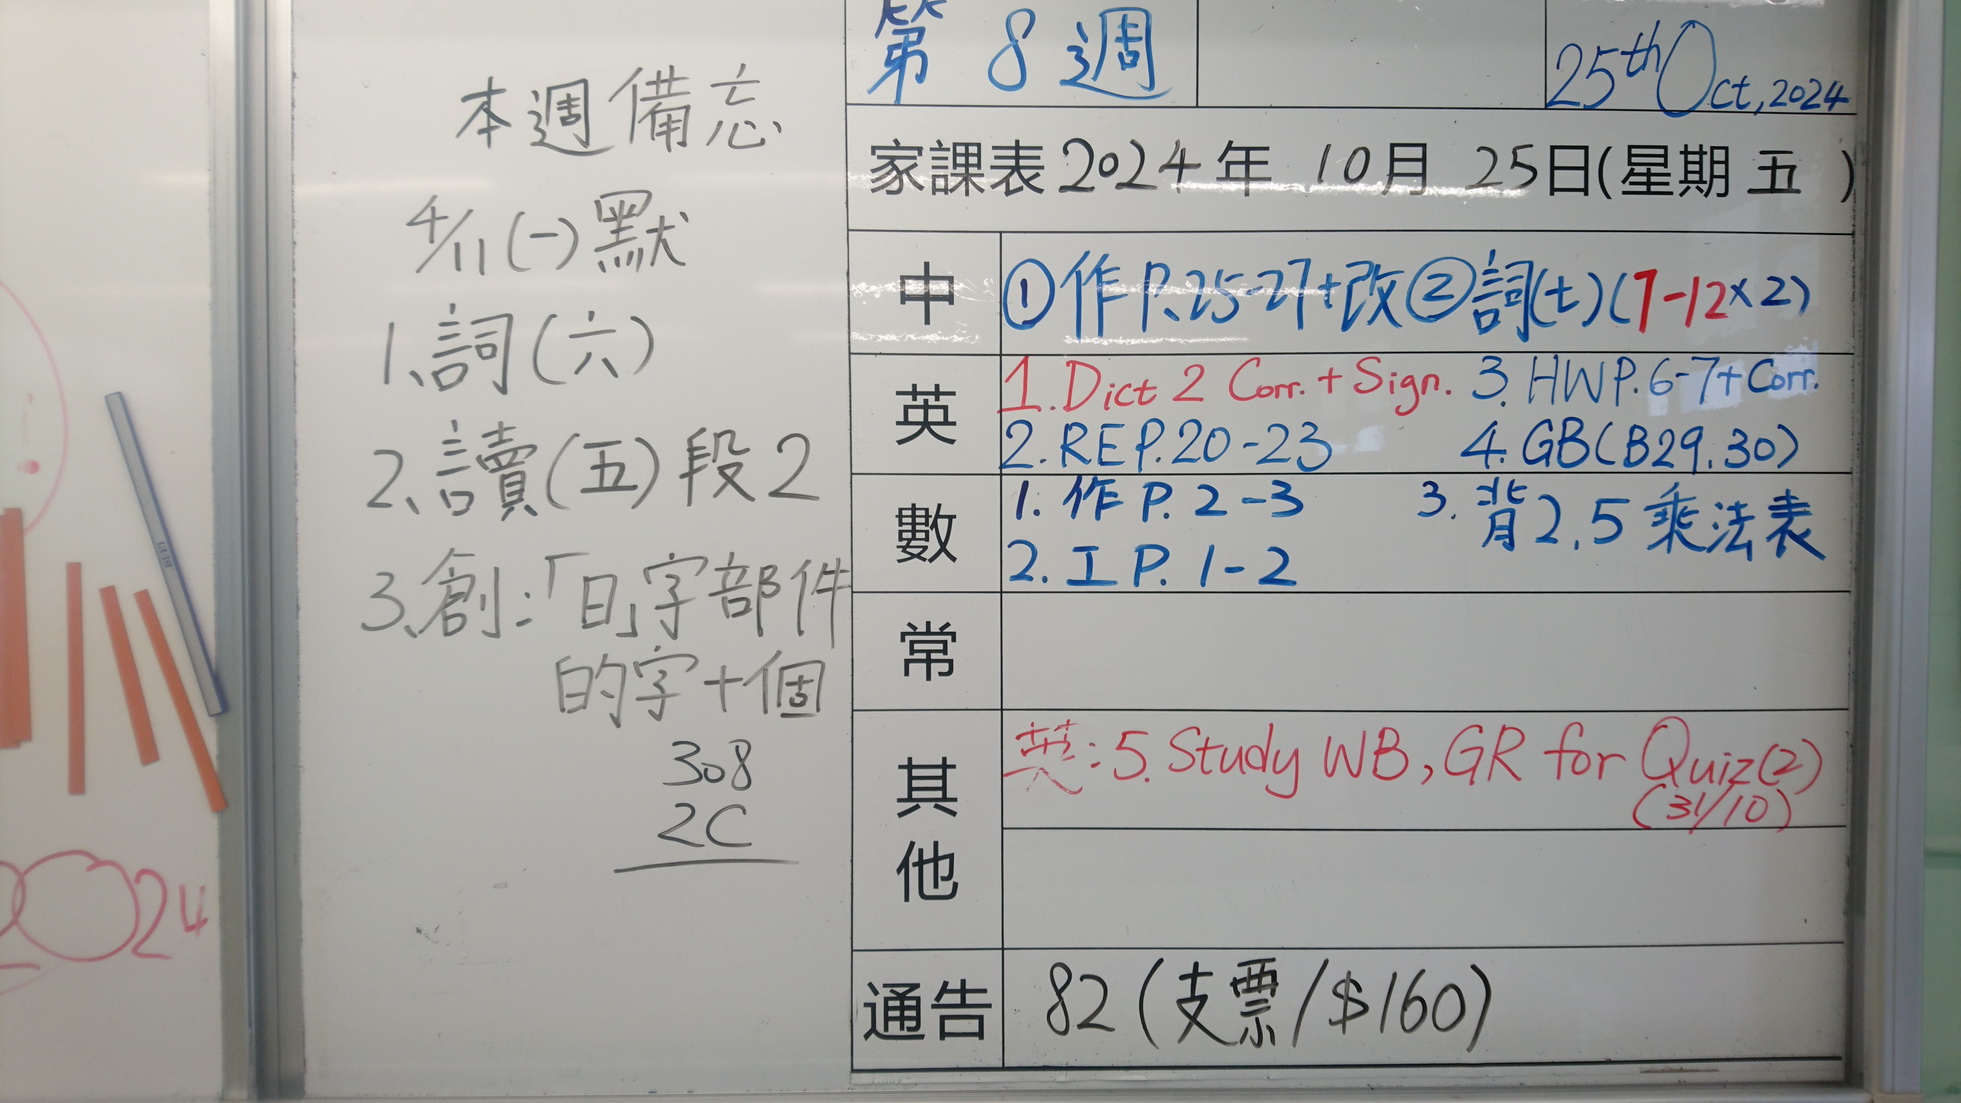 本週備忘
4/11(一)默
1、詞(六)
2、讀(五)段2
3、創：「日」字部件
的字十個
308
2C
24
第8週
25th Oct, 2024
家課表2024年 10月 25日(星期五)
中 ①作P.25-27+改②詞(七)(7-12×2)
英 1.Dict 2 Corr. + Sign. 3. HW P.6-7+Corr.
2. RE P.20-23 4. GB(B29,30)
數 1. 作P. 2-3 3. 背2,5乘法表
2. 工P. 1-2
常
其他 英: 5. Study WB, GR for Quiz(2)
(31/10)
通告 82(支票/$160)